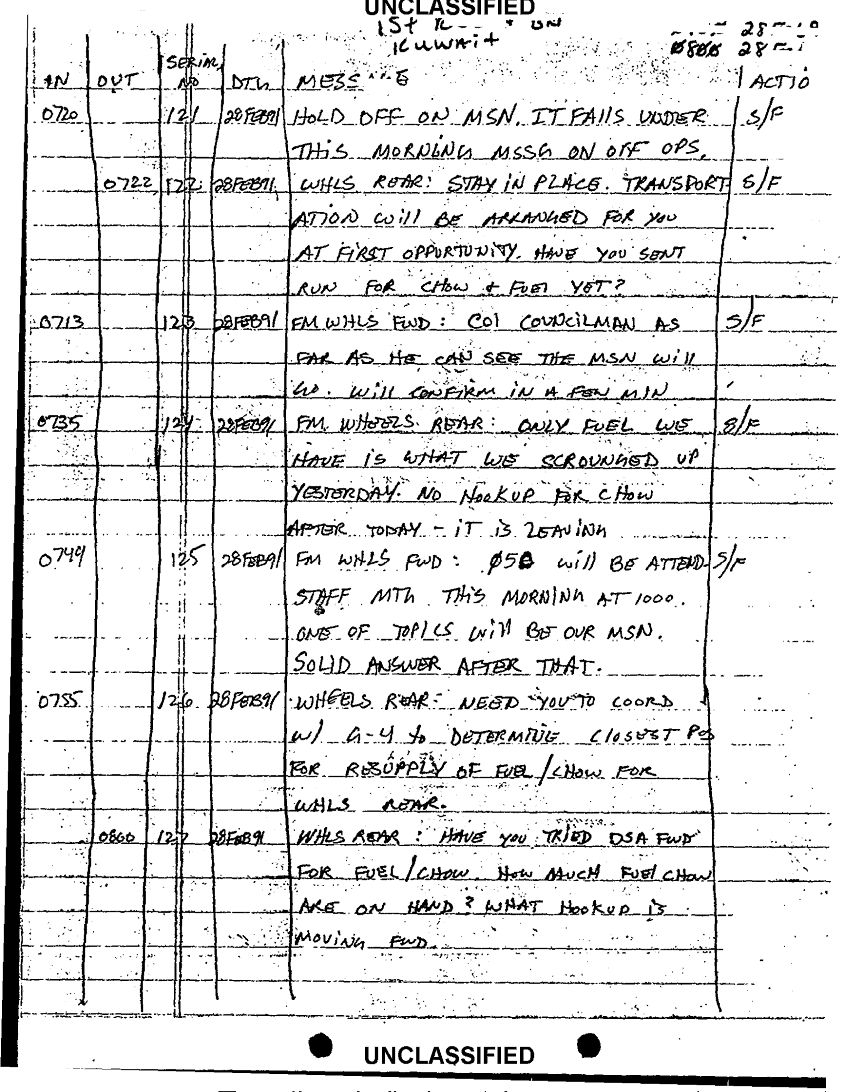 UNCLASSIFIED
1st BN
KUWAIT 28
28
IN OUT SERIAL NO DTG MESS E ACTIO
0720 121 28FEB91 HOLD OFF ON MSN. IT FALLS UNDER S/F
THIS MORNING MSSG ON OFF OPS.
0722 122 28FEB91 WHLS REAR: STAY IN PLACE. TRANSPORT S/F
ATION WILL BE ARRANGED FOR YOU
AT FIRST OPPORTUNITY. HAVE YOU SENT
RUN FOR CHOW & FUEL YET?
0713 123 28FEB91 FM WHLS FWD: COL COUNCILMAN AS S/F
FAR AS HE CAN SEE THE MSN WILL
GO. WILL CONFIRM IN A FEW MIN
0735 124 28FEB91 FM WHEELS REAR: ONLY FUEL WE S/F
HAVE IS WHAT WE SCROUNGED UP
YESTERDAY. NO HOOKUP FOR CHOW
AFTER TODAY - IT IS LEAVING
0749 125 28FEB91 FM WHLS FWD: Ø5Ø WILL BE ATTEND S/F
STAFF MTG THIS MORNING AT 1000.
ONE OF TOPICS WILL BE OUR MSN.
SOLID ANSWER AFTER THAT.
0755 126 28FEB91 WHEELS REAR- NEED YOU TO COORD
W/ G-4 TO DETERMINE CLOSEST POS
FOR RESUPPLY OF FUEL/CHOW FOR
WHLS REAR.
0800 127 28FEB91 WHLS REAR: HAVE YOU TRIED DSA FWD
FOR FUEL/CHOW. HOW MUCH FUEL CHOW
ARE ON HAND? WHAT HOOKUP IS
MOVING FWD.
UNCLASSIFIED